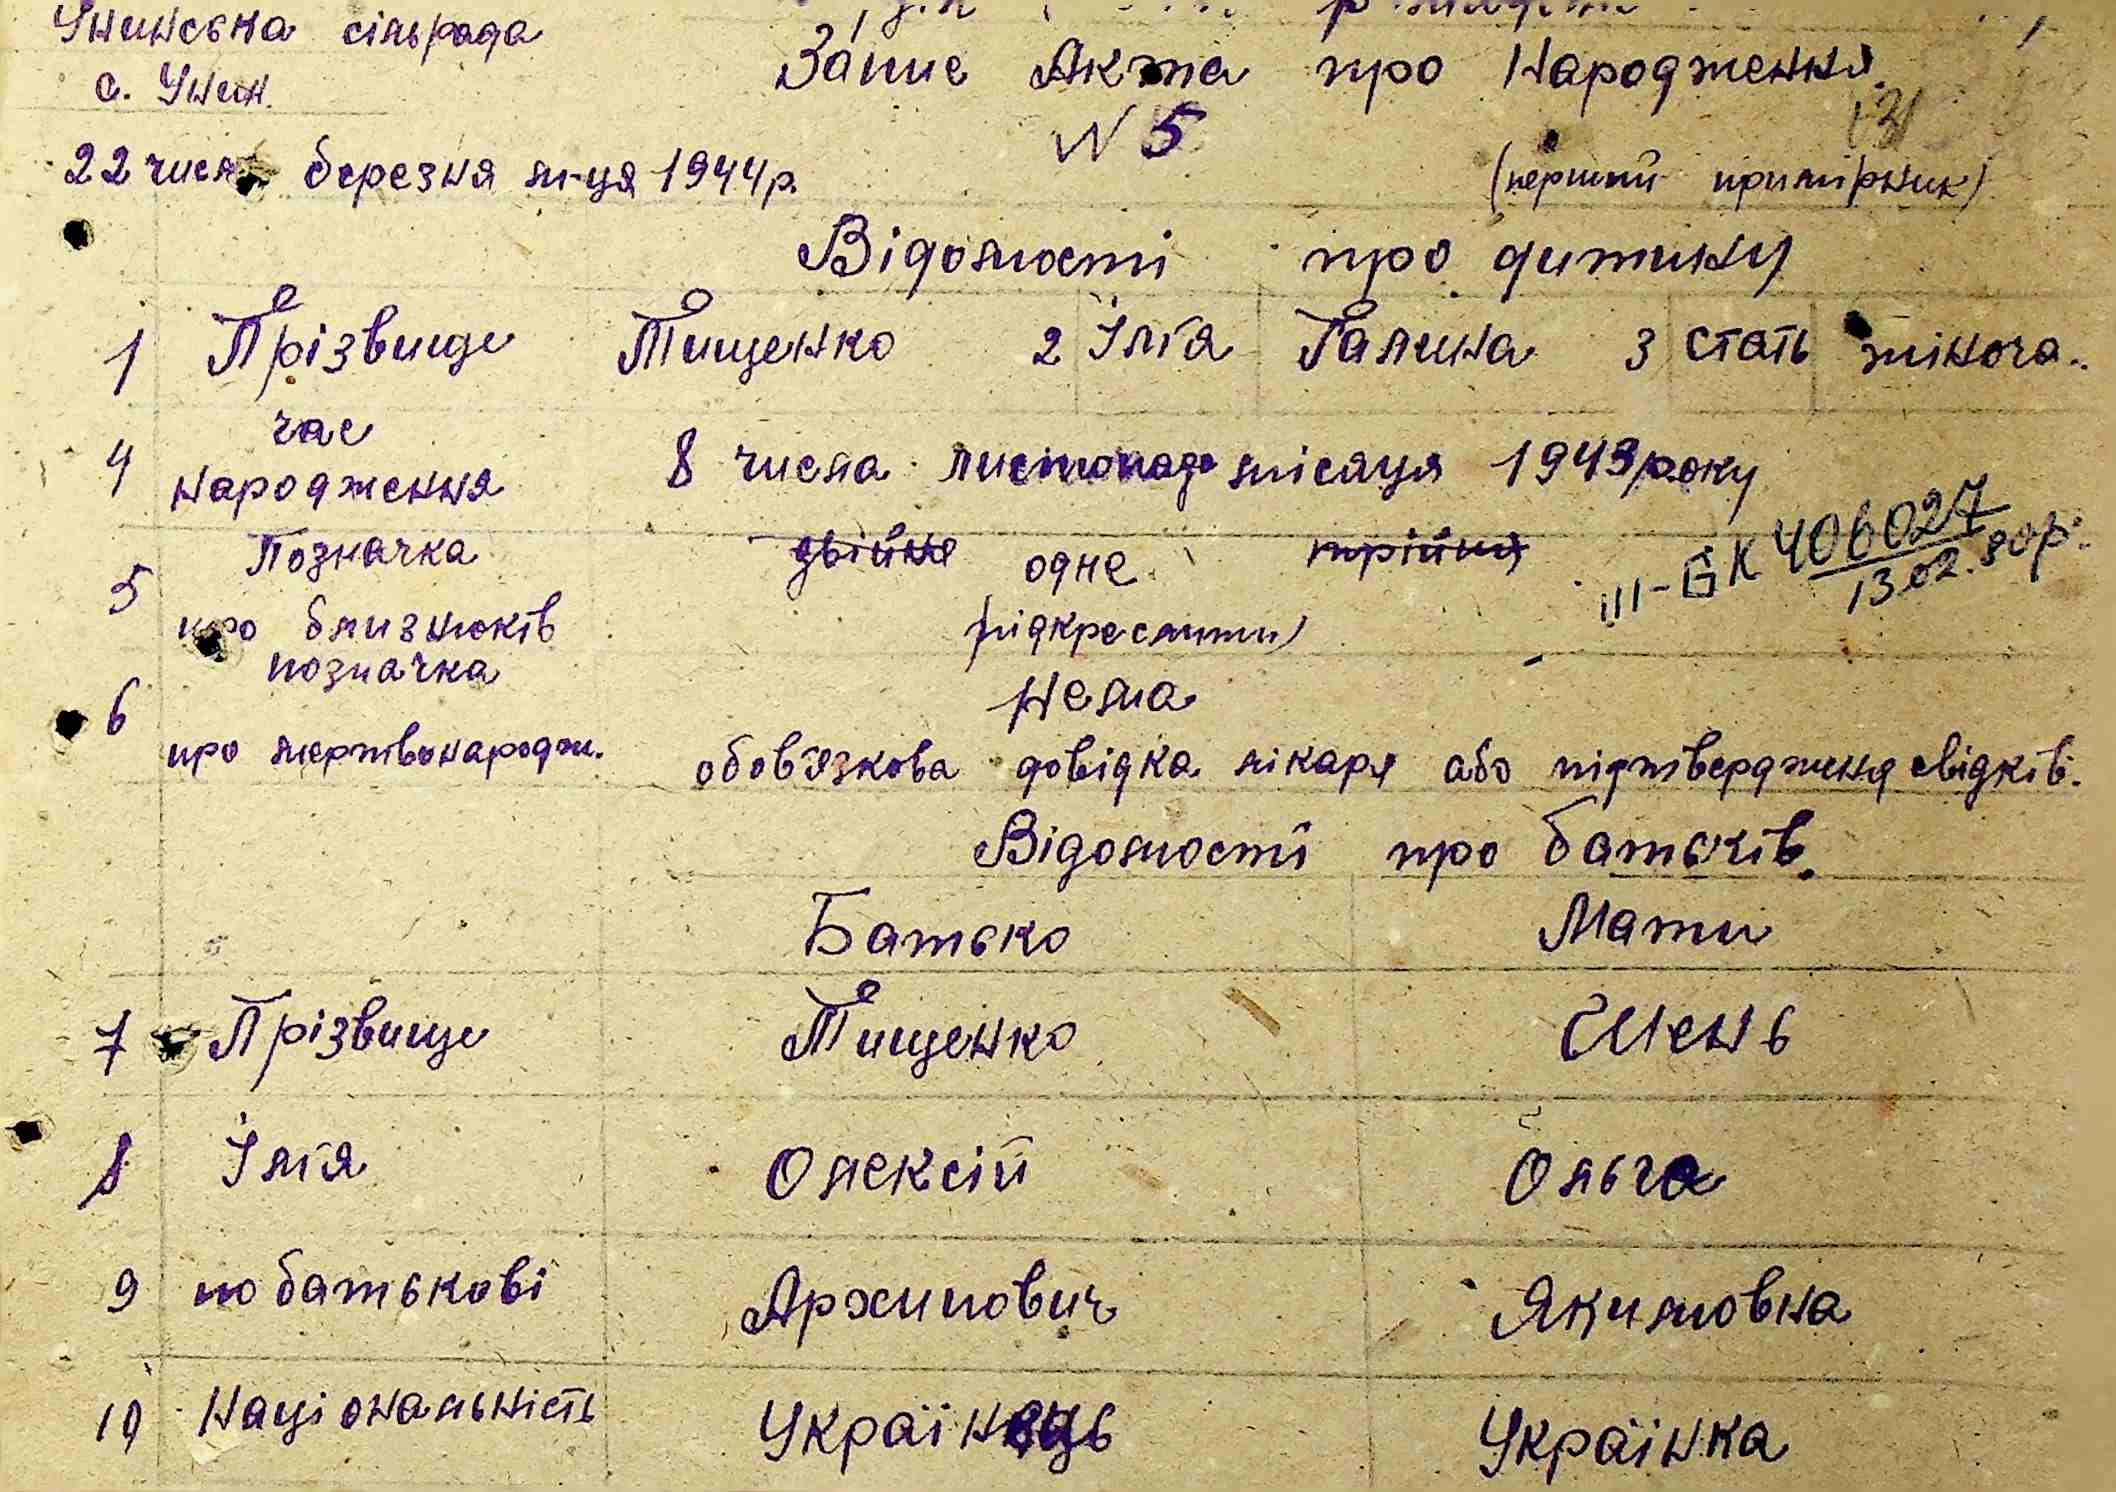 Унинська сільрада
Запис Акта про Народження
с. Унин.
N 5
22 числа березня м-ця 1944р.
(перший примірник)
Відомості про дитину
1 Прізвище Тищенко 2 Ім'я Галина 3 стать жіноча.
4 час народження 8 числа листопада місяця 1943 року
5 Позначка двійня одне трійня
III-БК 406027
13.02.80р.
про близнюків підкреслити)
6 позначка Нема
про мертвонародж. обов'язкова довідка лікаря або підтвердження свідків.
Відомості про батьків.
Батько Мати
7 Прізвище Тищенко
8 Ім'я Олексій Ольга
9 по батькові Архипович Якимовна
10 Національність Українець Українка